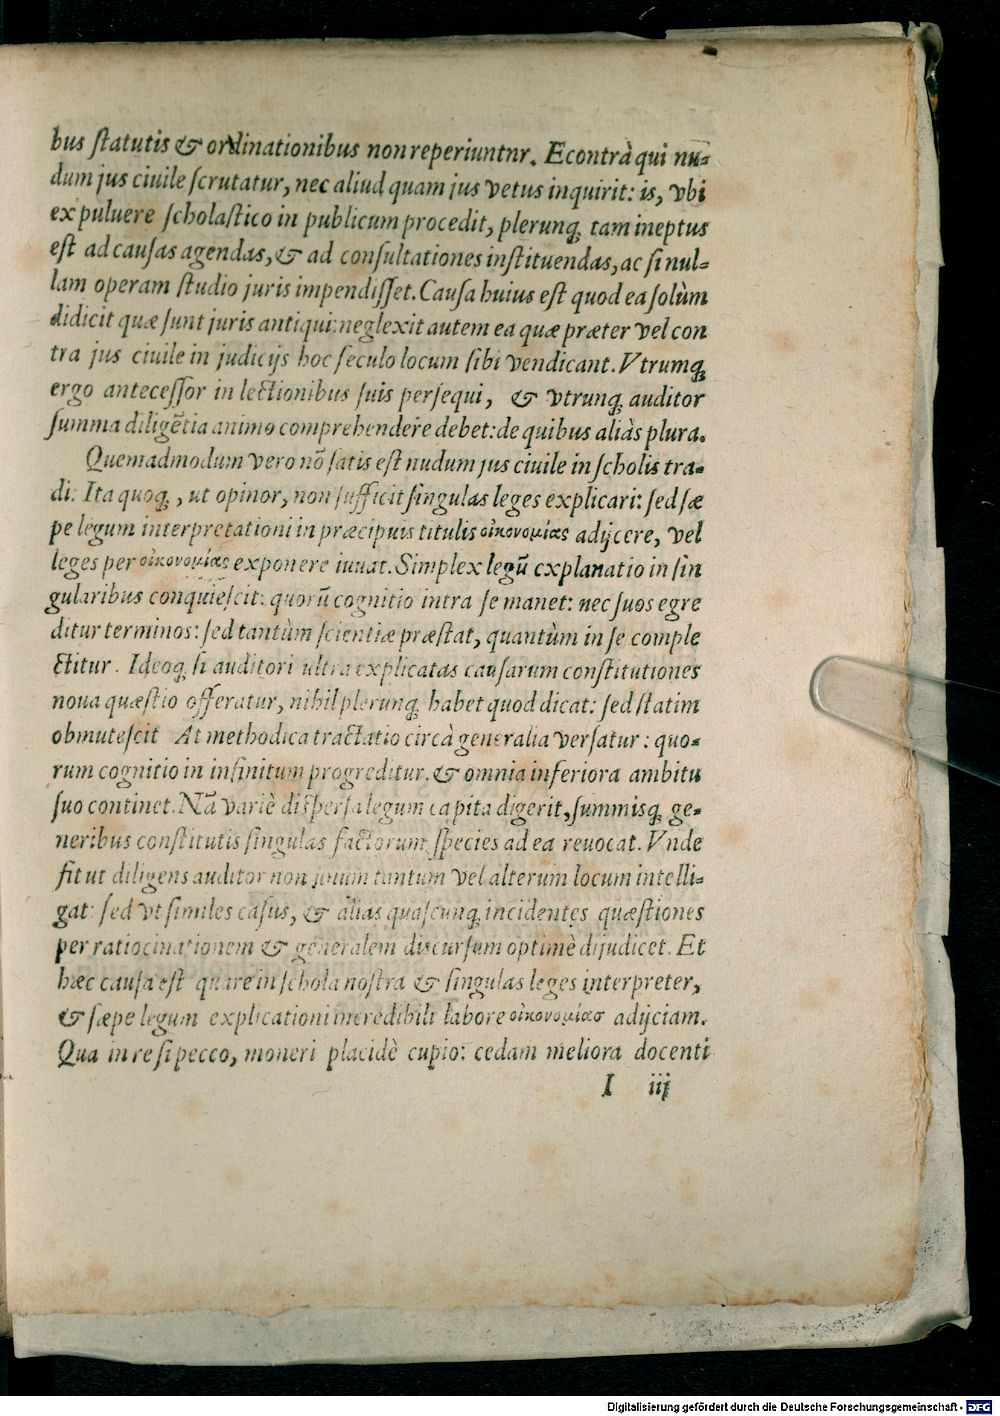 bus ſtatutis & ordinationibus non reperiuntnr. Econtrà qui nu-
dum jus ciuile ſcrutatur, nec aliud quam jus vetus inquirit: is, vbi
ex puluere ſcholaſtico in publicum procedit, plerunq; tam ineptus
eſt ad cauſas agendas, & ad conſultationes inſtituendas, ac ſi nul-
lam operam ſtudio juris impendiſſet. Cauſa huius eſt quod ea ſolùm
didicit quæ ſunt juris antiqui: neglexit autem ea quæ præter vel con
tra jus ciuile in judicijs hoc ſeculo locum ſibi vendicant. Vtrumq;
ergo anteceſſor in lectionibus ſuis perſequi, & vtrunq; auditor
ſumma diligētia animo comprehendere debet: de quibus aliàs plura.
Quemadmodum vero nō ſatis eſt nudum jus ciuile in ſcholis tra-
di: Ita quoq;, ut opinor, non ſufficit ſingulas leges explicari: ſed ſæ
pe legum interpretationi in præcipuis titulis οἰκονομίας adijcere, vel
leges per οἰκονομίας exponere iuuat. Simplex legū explanatio in ſin
gularibus conquieſcit: quorū cognitio intra ſe manet: nec ſuos egre
ditur terminos: ſed tantùm ſcientiæ præſtat, quantùm in ſe comple
ctitur. Ideoq; ſi auditori ultra explicatas cauſarum conſtitutiones
noua quæſtio offeratur, nihil plerunq; habet quod dicat: ſed ſtatim
obmuteſcit At methodica tractatio circà generalia verſatur: quo-
rum cognitio in infinitum progreditur. & omnia inferiora ambitu
ſuo continet. Nā variè diſperſa legum capita digerit, ſummisq; ge-
neribus conſtitutis ſingulas factorum ſpecies ad ea reuocat. Vnde
fit ut diligens auditor non vnum tantum vel alterum locum intelli-
gat: ſed vt ſimiles caſus, & alias quaſcunq; incidentes quæſtiones
per ratiocinationem & generalem diſcurſum optimè dijudicet. Et
hæc cauſa eſt quare in ſchola noſtra & ſingulas leges interpreter,
& ſæpe legum explicationi incredibili labore οἰκονομίας adijciam.
Qua in re ſi pecco, moneri placidè cupio: cedam meliora docenti
I iij
Digitalisierung gefördert durch die Deutsche Forschungsgemeinschaft - DFG